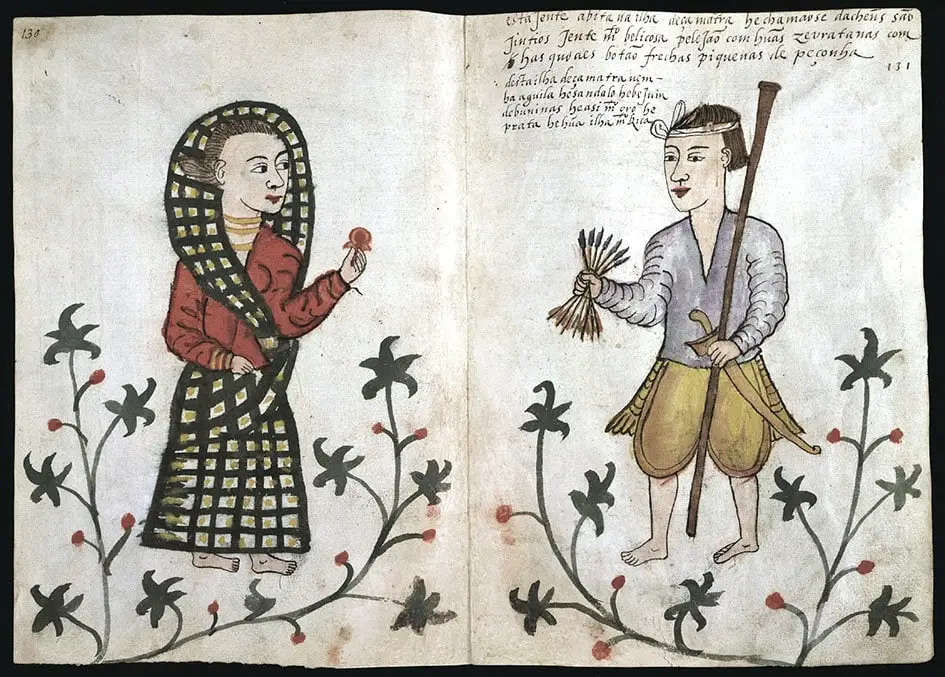 130
esta jente abita na ilha de çamatra he chamaose dachens são
jintios jente mᵗᵒ belicosa pelejão com hũas zevratanas com
has quoaes botão frechas piquenas de peçonha
131
desta ilha de çamatra vem
ha aguila he sandalo he bejuin
de buninas he asi mᵗᵒ oro he
prata he hũa ilha mᵗᵒ Rica